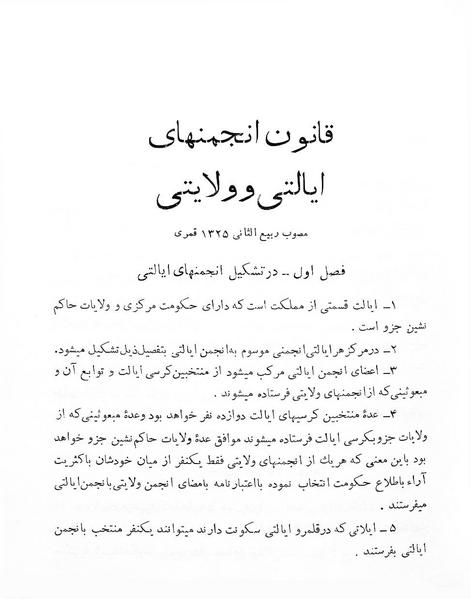 قانون انجمنهای
ایالتی و ولایتی
مصوب ربیع الثانی ۱۳۲۵ قمری
فصل اول ــ در تشکیل انجمنهای ایالتی
۱ــ ایالت قسمتی از مملکت است که دارای حکومت مرکزی و ولایات حاکم
نشین جزو است .
۲ــ در مرکز هر ایالتی انجمنی موسوم به انجمن ایالتی بتفصیل ذیل تشکیل میشود.
۳ــ اعضای انجمن ایالتی مرکب میشود از منتخبین کرسی ایالت و توابع آن و
مبعوثینی که از انجمنهای ولایتی فرستاده میشوند .
۴ــ عدهٔ منتخبین کرسیهای ایالت دوازده نفر خواهد بود وعدهٔ مبعوثینی که از
ولایات جزو بکرسی ایالت فرستاده میشوند موافق عدهٔ ولایات حاکم نشین جزو خواهد
بود باین معنی که هر یك از انجمنهای ولایتی فقط یکنفر از میان خودشان باکثریت
آراء باطلاع حکومت انتخاب نموده بااعتبارنامه بامضای انجمن ولایتی بانجمن ایالتی
میفرستند .
۵ ــ ایلاتی که در قلمرو ایالتی سکونت دارند میتوانند یکنفر منتخب بانجمن
ایالتی بفرستند .